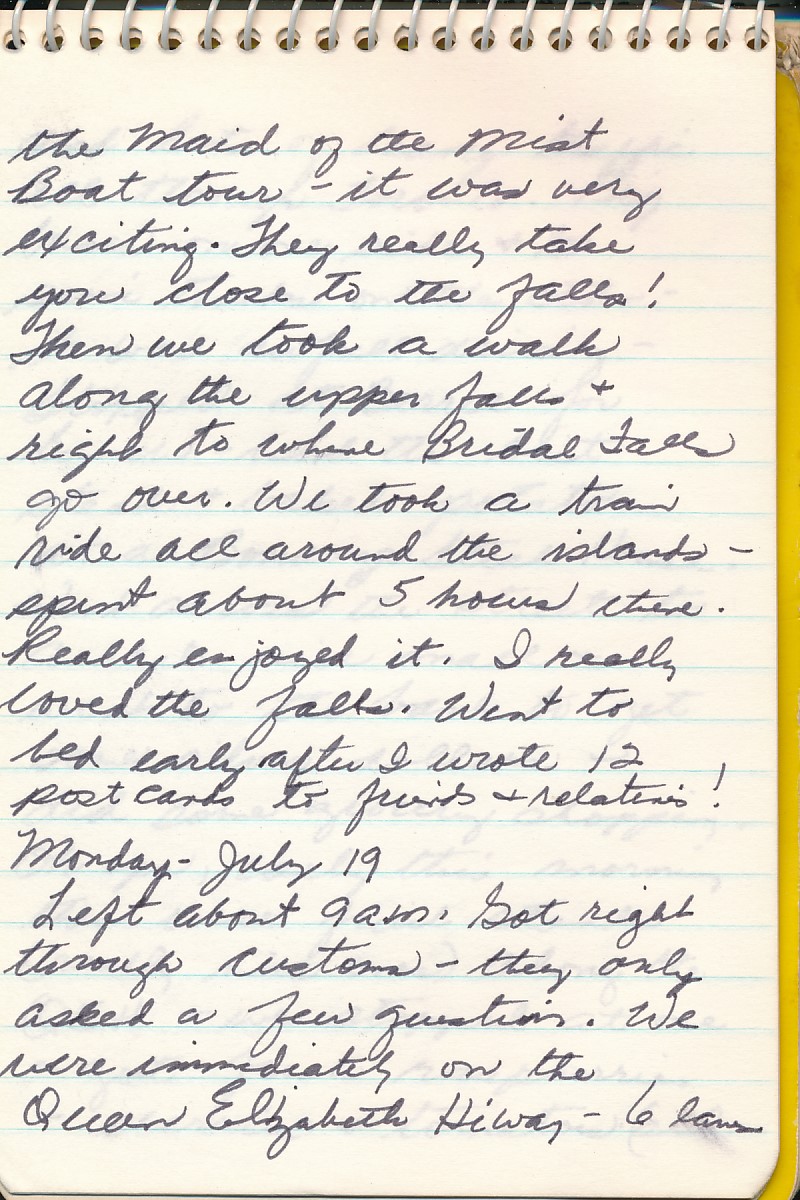 the Maid of the Mist
Boat tour - it was very
exciting. They really take
you close to the falls!
Then we took a walk
along the upper falls +
right to where Bridal Falls
go over. We took a train
ride all around the islands -
spent about 5 hours there.
Really enjoyed it. I really
loved the falls. Went to
bed early after I wrote 12
post cards to friends + relatives!
Monday - July 19
Left about 9 am. Got right
through customs - they only
asked a few questions. We
were immediately on the
Queen Elizabeth Hiway - 6 lanes